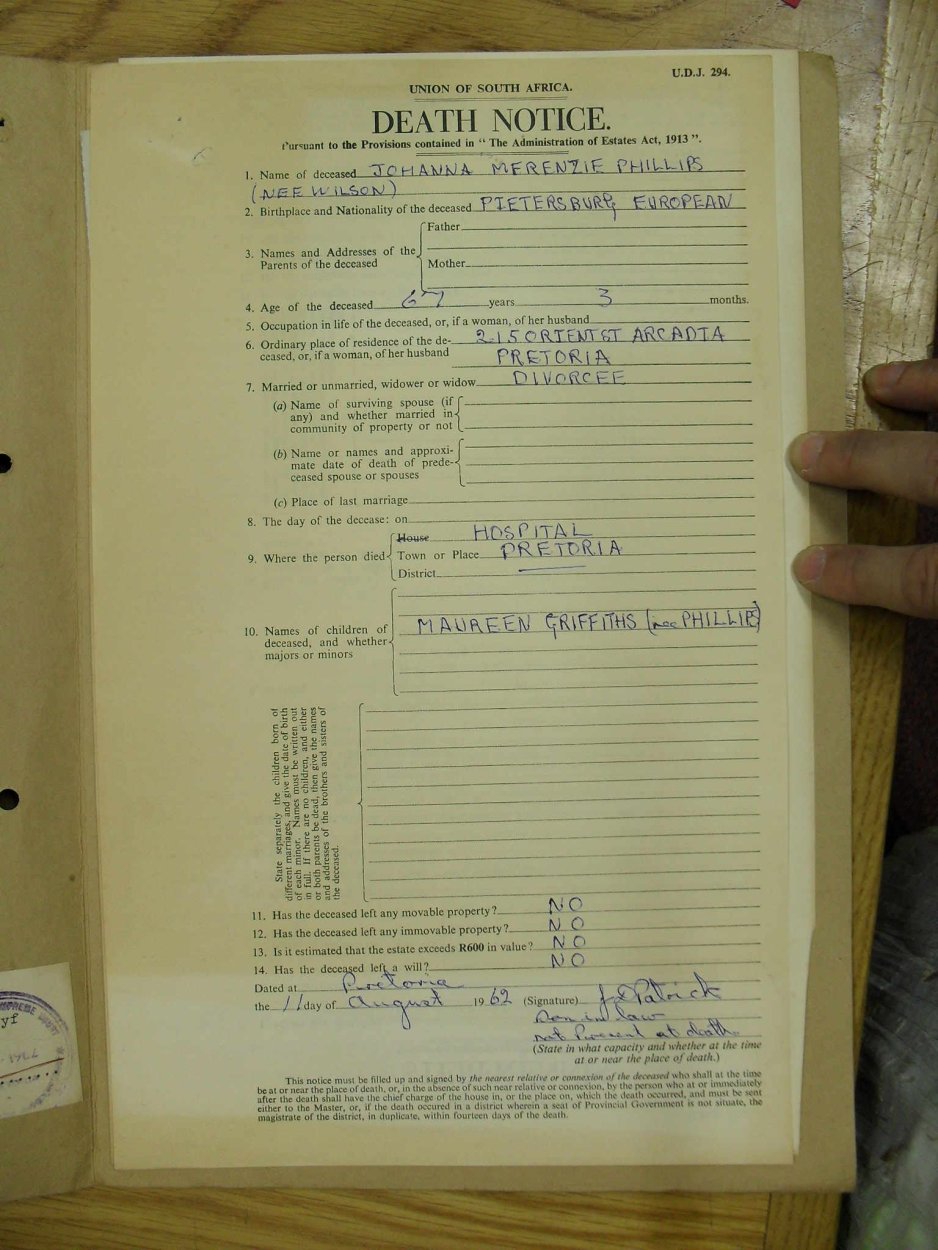 U.D.J. 294.
UNION OF SOUTH AFRICA.
DEATH NOTICE.
Pursuant to the Provisions contained in " The Administration of Estates Act, 1913 ".
1. Name of deceased JOHANNA MERENZIE PHILLIPS
(NEE WILSON)
2. Birthplace and Nationality of the deceased PIETERSBURG EUROPEAN
3. Names and Addresses of the Parents of the deceased
Father
Mother
4. Age of the deceased 67 years 3 months.
5. Occupation in life of the deceased, or, if a woman, of her husband
6. Ordinary place of residence of the de- 215 ORIENT ST ARCADIA
ceased, or, if a woman, of her husband PRETORIA
7. Married or unmarried, widower or widow DIVORCEE
(a) Name of surviving spouse (if
any) and whether married in
community of property or not
(b) Name or names and approxi-
mate date of death of prede-
ceased spouse or spouses
(c) Place of last marriage
8. The day of the decease: on
9. Where the person died
House HOSPITAL
Town or Place PRETORIA
District
10. Names of children of
deceased, and whether
majors or minors
MAUREEN GRIFFITHS (nee PHILLIPS)
State separately the children born of
different marriages, and give the date of birth
of each minor. Names must be written out
in full. If there are no children, and either
or both parents be dead, then give the names
and addresses of the brothers and sisters of
the deceased.
11. Has the deceased left any movable property? NO
12. Has the deceased left any immovable property? NO
13. Is it estimated that the estate exceeds R600 in value? NO
14. Has the deceased left a will? NO
Dated at Pretoria
the 11 day of August 1962 (Signature) Patrick
Son in law
not Present at death
(State in what capacity and whether at the time
at or near the place of death.)
This notice must be filled up and signed by the nearest relative or connexion of the deceased who shall at the time
be at or near the place of death, or, in the absence of such near relative or connexion, by the person who at or immediately
after the death shall have the chief charge of the house in, or the place on, which the death occurred, and must be sent
either to the Master, or, if the death occured in a district wherein a seat of Provincial Government is not situate, the
magistrate of the district, in duplicate, within fourteen days of the death.